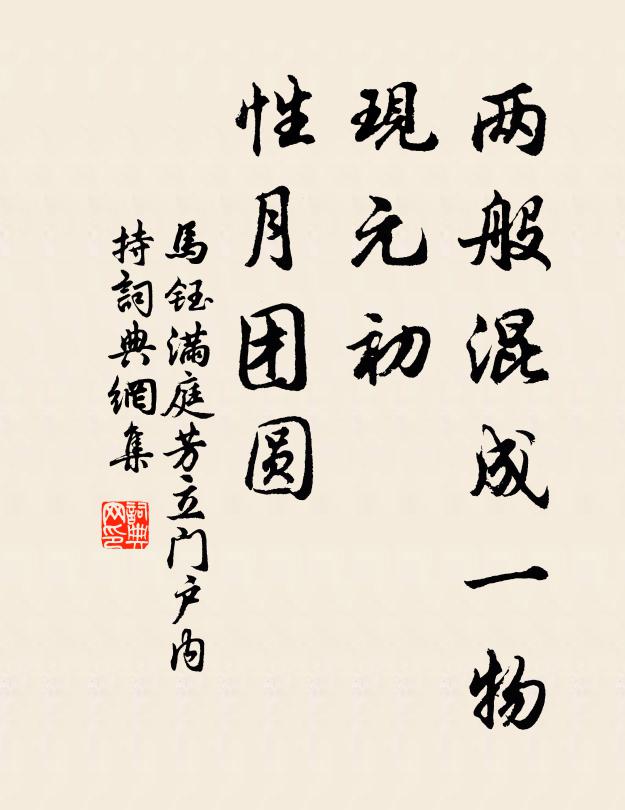 两般混成一物
現元初
性月团圆
馬鈺满庭芳立门户内
持詞典網集
詞典网印